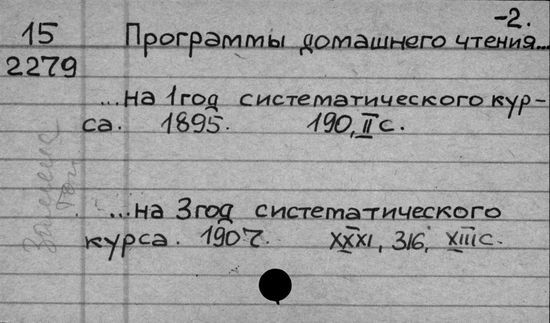 -2.
15 Программы домашнего чтения...
2279
...на 1 год систематического кур-
са. 1895. 190, II с.
...на 3 год систематического
курса. 1907. XXXI, 316, XIII с.